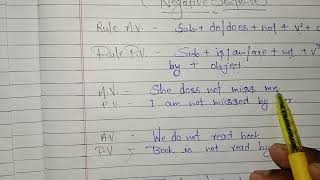 Negative Sequence
Rule A.V. - Sub + do/does + not + V¹ +
Rule P.V. - Sub + is/am/are + not + V³
by + object
A.V. - She does not miss me.
P.V. - I am not missed by
A.V. - We do not read book
P.V. - Book is not read by